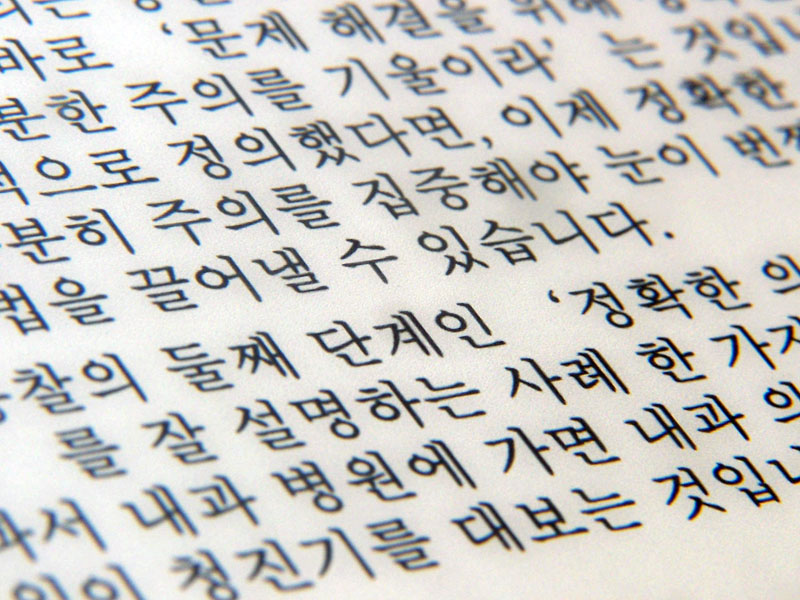 바로 ‘문제 해결을 위해
분한 주의를 기울이라’ 는 것입니
적으로 정의했다면, 이제 정확한
분히 주의를 집중해야 눈이 번쩍
법을 끌어낼 수 있습니다.
찰의 둘째 단계인 ‘정확한 의
를 잘 설명하는 사례 한 가지
내과 병원에 가면 내과 의
청진기를 대보는 것입니